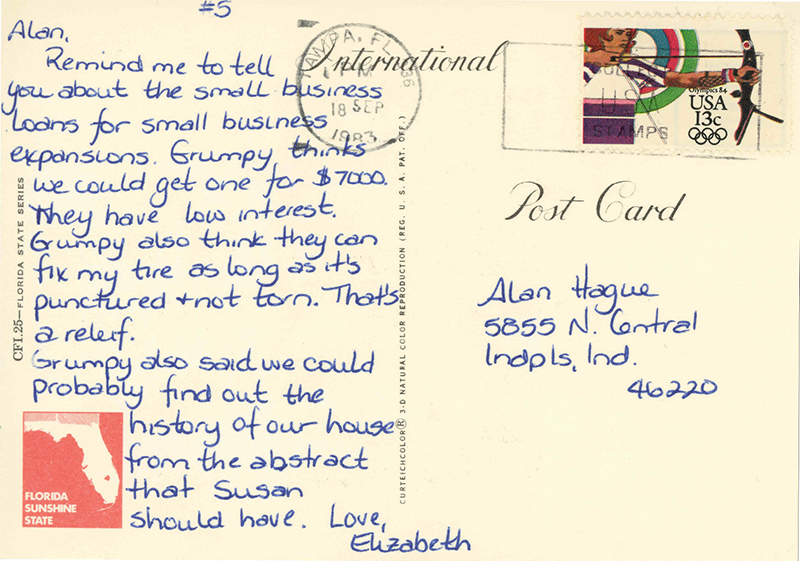 #5
Alan,
Remind me to tell
you about the small business
loans for small business
expansions. Grumpy thinks
we could get one for $7000.
They have low interest.
Grumpy also think they can
fix my tire as long as it's
punctured + not torn. That's
a releif.
Grumpy also said we could
probably find out the
history of our house
from the abstract
that Susan
should have. Love,
Elizabeth
CFI.25—FLORIDA STATE SERIES
FLORIDA
SUNSHINE
STATE
CURTEICHCOLOR® 3-D NATURAL COLOR REPRODUCTION (REG. U. S. A. PAT. OFF.)
International
Post Card
TAMPA, FL 336
PM
18 SEP
1983
USA
STAMPS
Olympics 84
USA
13c
Alan Hague
5855 N. Central
Indpls, Ind.
46220